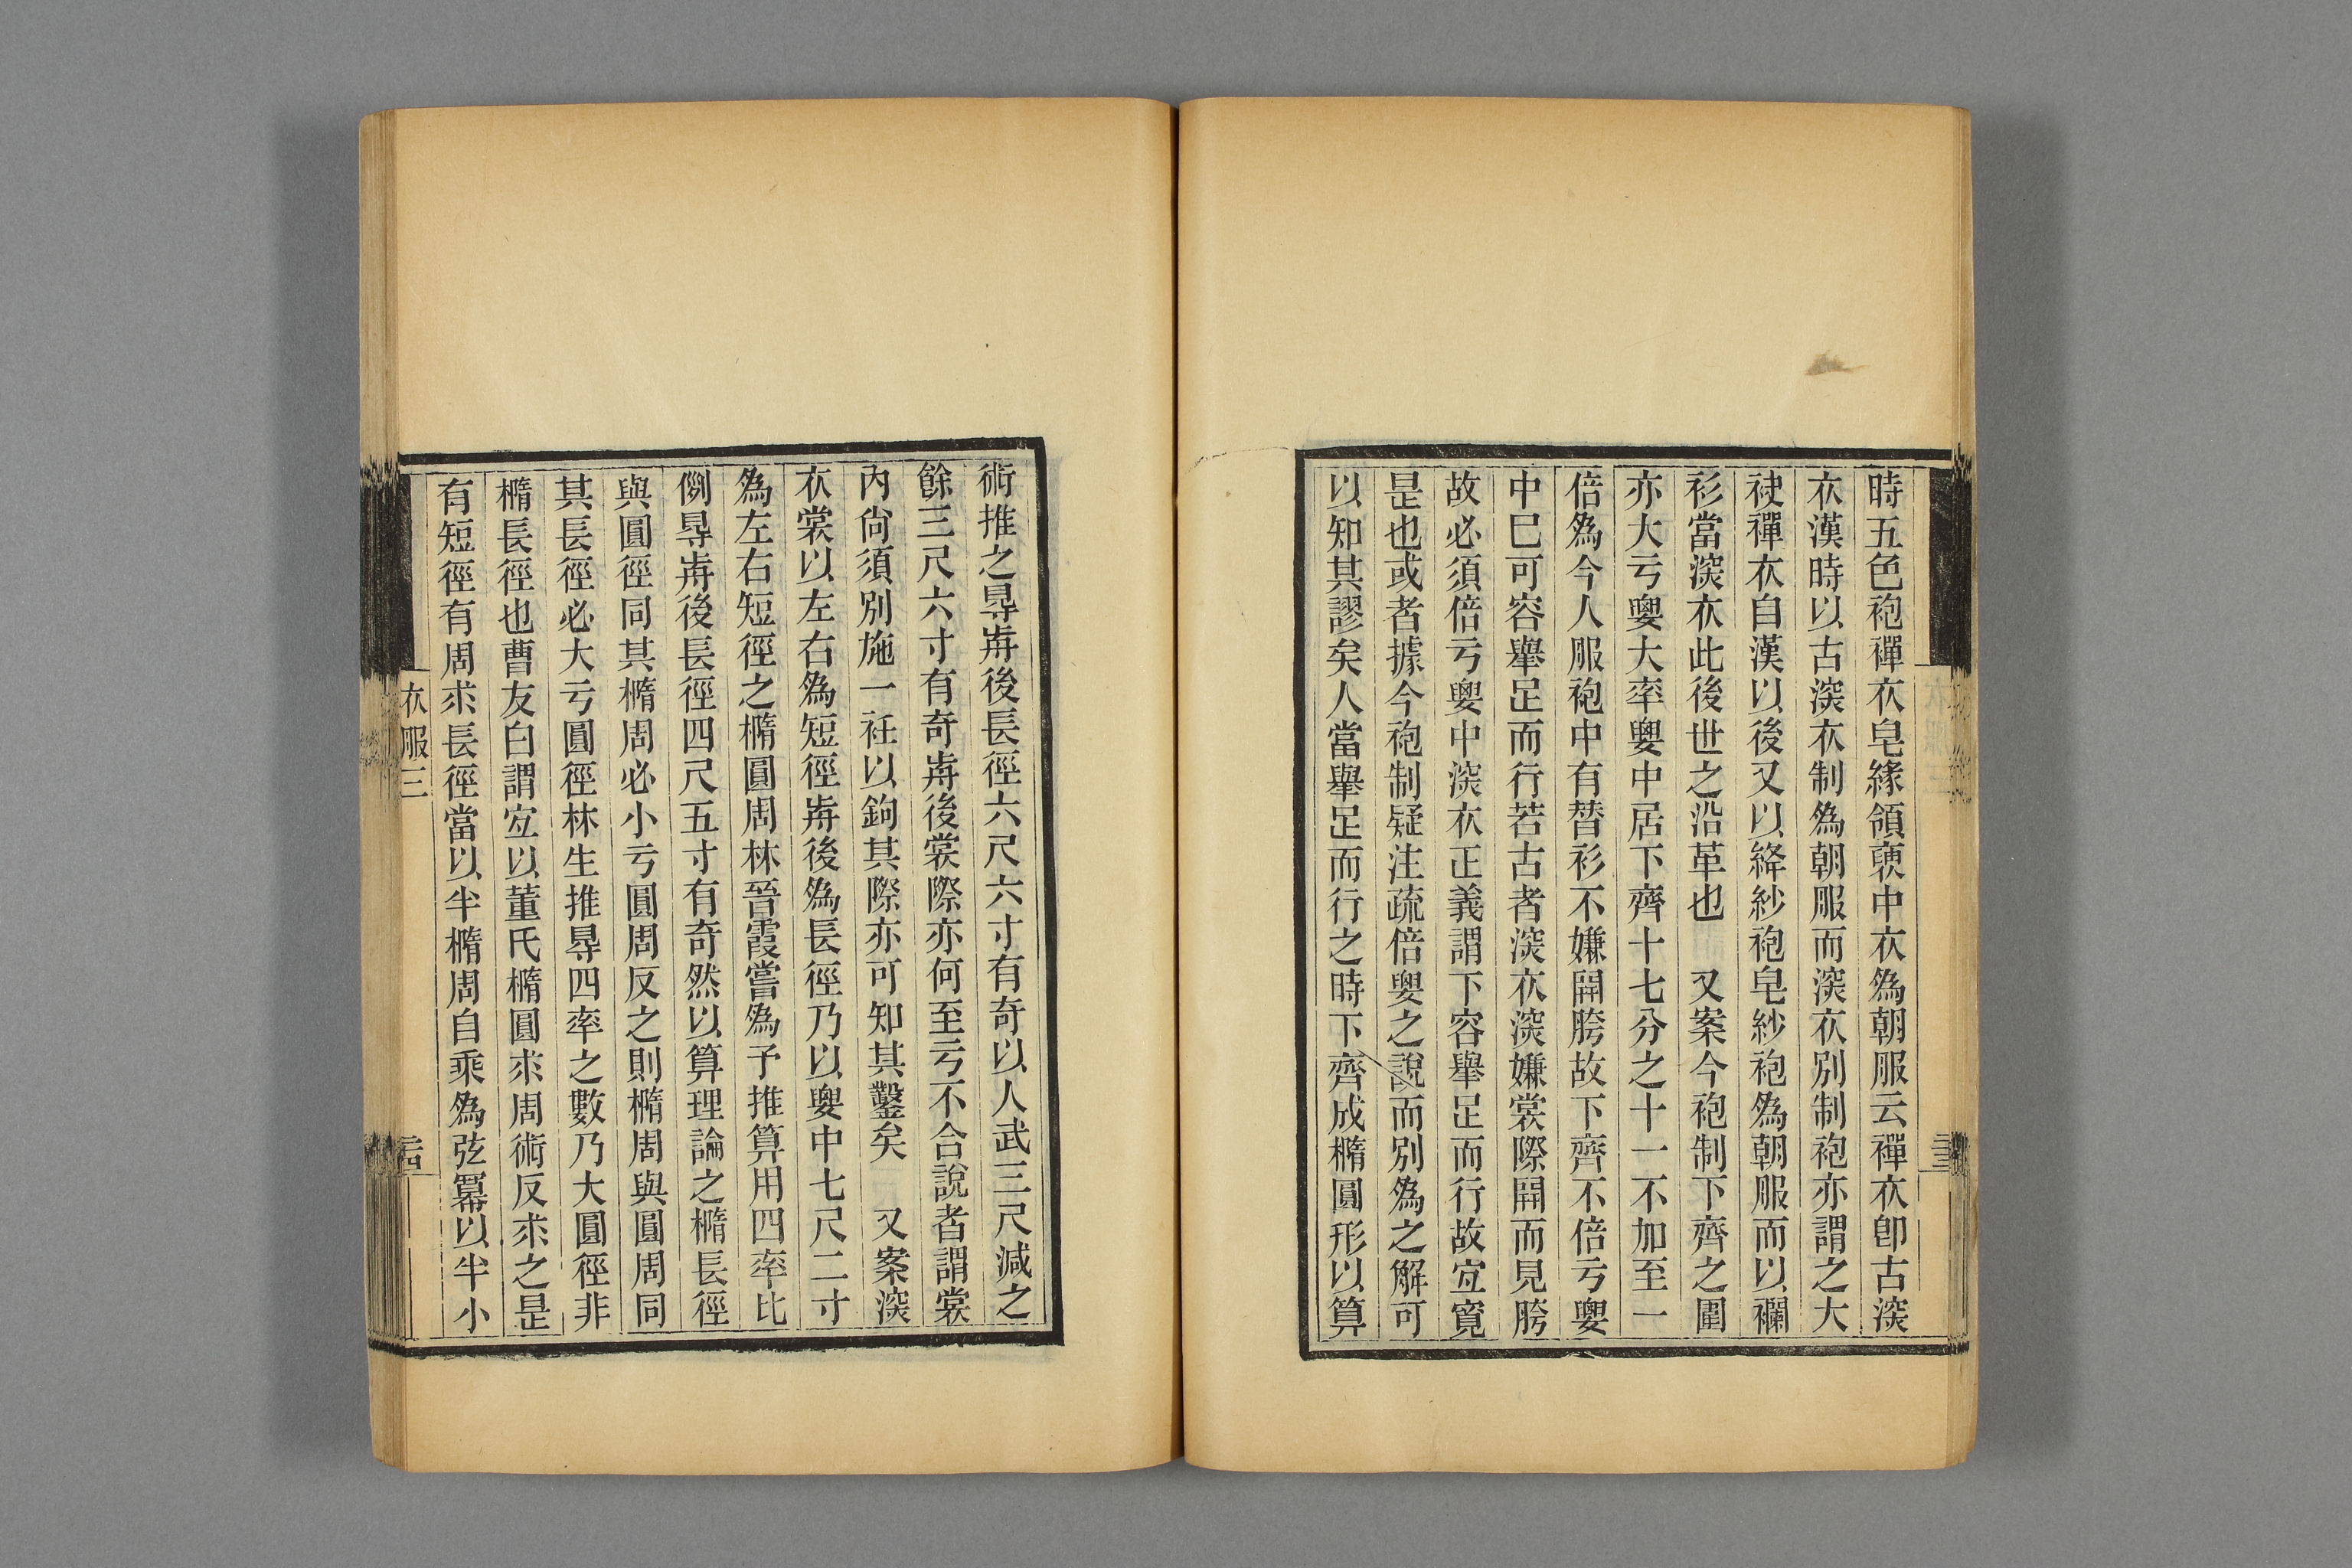 時五色袍襌衣皂緣領褏中衣爲朝服云襌衣卽古深
衣漢時以古深衣制爲朝服而深衣別制袍亦謂之大
䘨襌衣自漢以後又以絳紗袍皂紗袍爲朝服而以襴
衫當深衣此後世之沿革也　又案今袍制下齊之圍
亦大亏𡢗大率𡢗中居下齊十七分之十一不加至一
倍爲今人服袍中有替衫不嫌開胯故下齊不倍亏𡢗
中巳可容舉足而行若古者深衣深嫌裳際開而見胯
故必須倍亏𡢗中深衣正義謂下容舉足而行故宐寬
是也或者據今袍制疑注疏倍𡢗之說而別爲之解可
以知其謬矣人當舉足而行之時下齊成橢圓形以算
衣服三
術推之㝵歬後長徑六尺六寸有奇以人武三尺減之
餘三尺六寸有奇歬後裳際亦何至亏不合說者謂裳
內尙須別施一衽以鉤其際亦可知其鑿矣　又案深
衣裳以左右爲短徑歬後爲長徑乃以𡢗中七尺二寸
爲左右短徑之橢圓周林晉霞嘗爲予推算用四率比
例㝵歬後長徑四尺五寸有奇然以算理論之橢長徑
與圓徑同其橢周必小亏圓周反之則橢周與圓周同
其長徑必大亏圓徑林生推㝵四率之數乃大圓徑非
橢長徑也曹友白謂宐以董氏橢圓求周術反求之是
有短徑有周求長徑當以半橢周自乘爲弦冪以半小